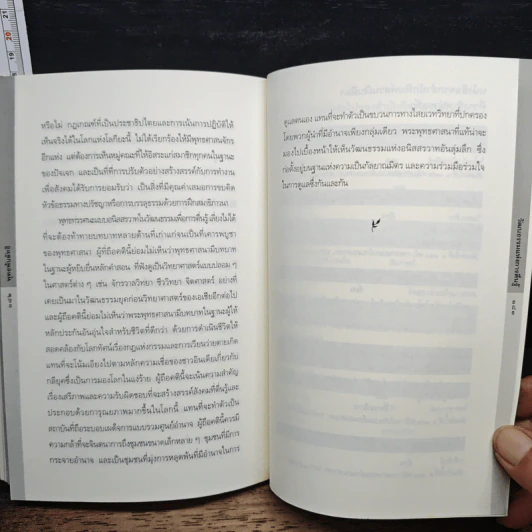 หรือไม่ กฎเกณฑ์ที่เป็นประชาธิปไตยและการเน้นการปฏิบัติให้
เห็นจริงได้ในโลกแห่งโลกียะนี้ ไม่ได้เรียกร้องให้มีพุทธศาสนจักร
อีกแห่ง แต่ต้องการเห็นหมู่คณะที่ให้อิสระแก่สมาชิกทุกคนในฐานะ
ของปัจเจก และเป็นที่ที่การปรับตัวอย่างสร้างสรรค์กับการทำงาน
เพื่อสังคมได้รับการยอมรับว่า เป็นสิ่งที่มีคุณค่าเสมอการขบคิด
หัวข้อธรรมทางปรัชญาหรือการบรรลุธรรมด้วยการฝึกสมาธิภาวนา
พุทธทรรศนะแบบอนิสสรวาทในวัฒนธรรมเพื่อการตื่นรู้ เลี่ยงไม่ได้
ที่จะต้องท้าทายบทบาทหลายด้านที่เก่าแก่จนเป็นที่เคารพบูชา
ของพุทธศาสนา ผู้ที่ถือคตินี้ย่อมไม่เห็นว่าพุทธศาสนามีบทบาท
ในฐานะผู้หยิบยื่นหลักคำสอน ที่ฟังดูเป็นวิทยาศาสตร์แบบปลอม ๆ
ในศาสตร์ต่าง ๆ เช่น จักรวาลวิทยา ชีววิทยา จิตศาสตร์ อย่างที่
เคยเป็นมาในวัฒนธรรมยุคก่อนวิทยาศาสตร์ของเอเชียอีกต่อไป
และผู้ถือคตินี้ย่อมไม่เห็นว่าพระพุทธศาสนามีบทบาทในฐานะผู้ให้
หลักประกันอันอุ่นใจสำหรับชีวิตที่ดีกว่า ด้วยการดำเนินชีวิตให้
สอดคล้องกับโลกทัศน์เรื่องกฎแห่งกรรมและการเวียนว่ายตายเกิด
แทนที่จะโน้มเอียงไปตามหลักความเชื่อของชาวอินเดียเกี่ยวกับ
กลียุคซึ่งเป็นการมองโลกในแง่ร้าย ผู้ถือคตินี้จะเน้นความสำคัญ
เรื่องเสรีภาพและความรับผิดชอบที่จะสร้างสรรค์สังคมที่ตื่นรู้และ
ประกอบด้วยการุณยภาพมากขึ้นในโลกนี้ แทนที่จะทำตัวเป็น
สถาบันที่ถือระบอบเผด็จการแบบรวมศูนย์อำนาจ ผู้ถือคตินี้ควรมี
ความกล้าที่จะจินตนาการถึงชุมชนขนาดเล็กหลาย ๆ ชุมชนที่มีการ
กระจายอำนาจ และเป็นชุมชนที่มุ่งการหลุดพ้นที่มีอำนาจในการ
ดูแลตนเอง แทนที่จะทำตัวเป็นขบวนการทางไสยเวทวิทยาที่ปกครอง
โดยพวกผู้นำที่มีอำนาจเพียงกลุ่มเดียว พระพุทธศาสนาที่แท้น่าจะ
มองไปเบื้องหน้าให้เห็นวัฒนธรรมแห่งอนิสสรวาทอันลุ่มลึก ซึ่ง
ก่อตั้งอยู่บนฐานแห่งความเป็นกัลยาณมิตร และความร่วมมือร่วมใจ
ในการดูแลซึ่งกันและกัน
วัฒนธรรมแห่งการตื่นรู้